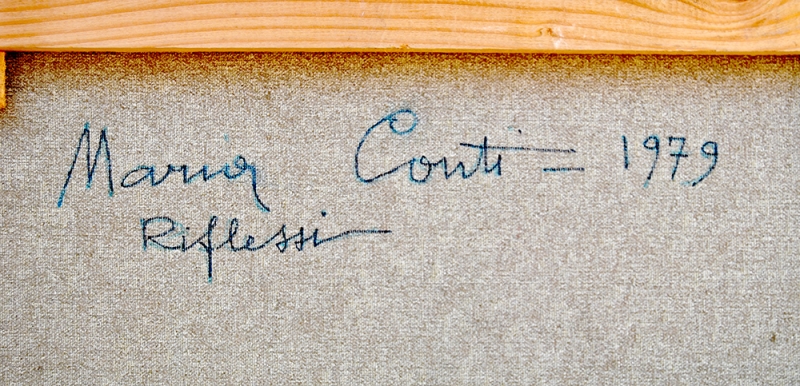 Maria Conti = 1979
Riflessi